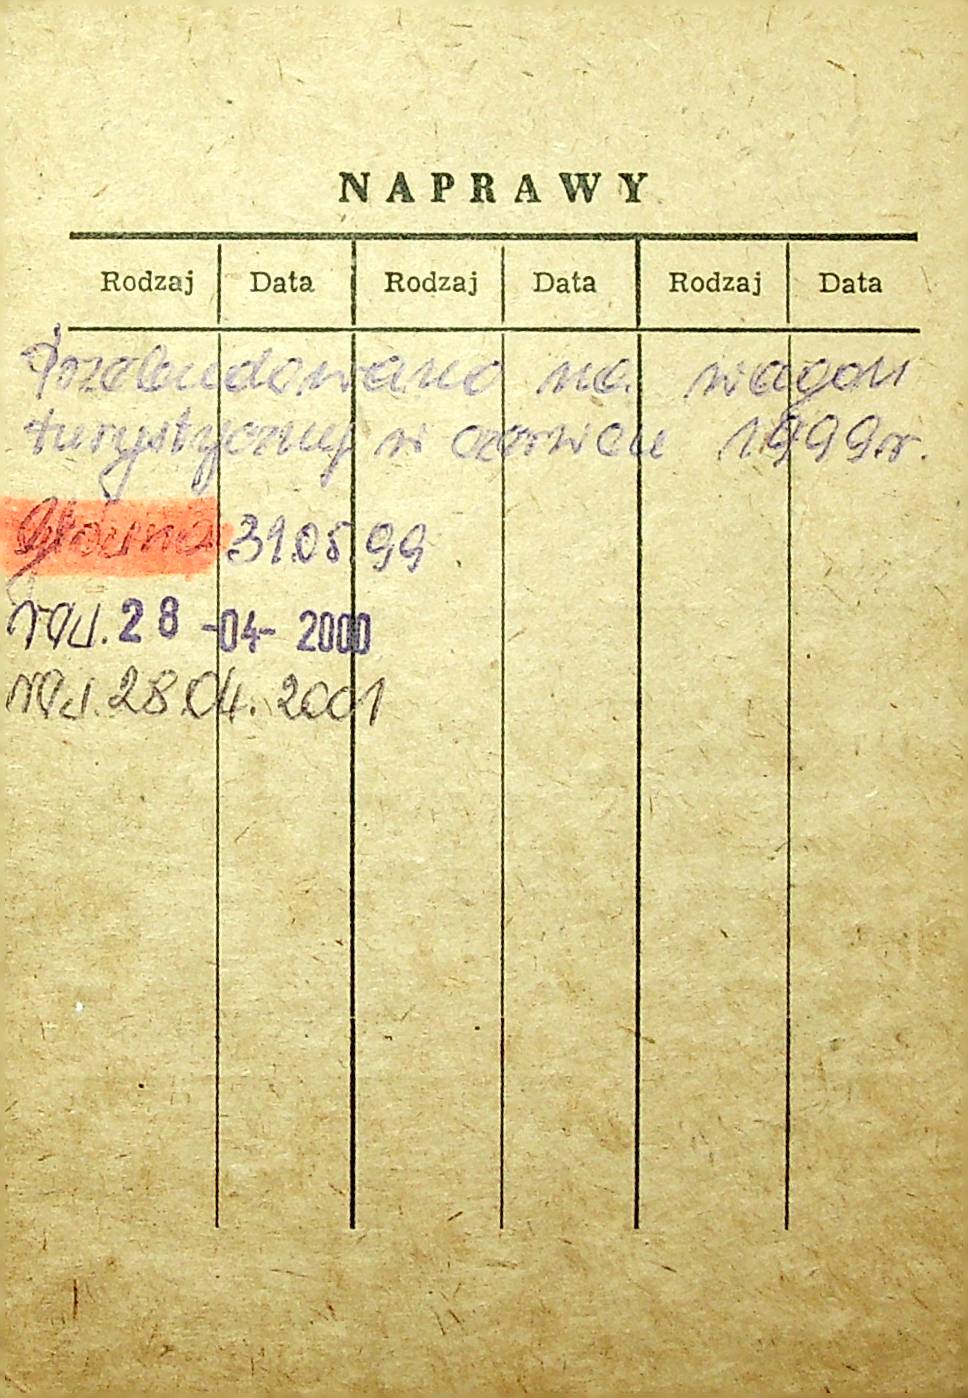 NAPRAWY
Rodzaj Data Rodzaj Data Rodzaj Data
Przebudowano na wagon
turystyczny w czerwcu 1999r.
Główna 31.05.99
rew. 28 -04- 2000
rew. 28.04.2001